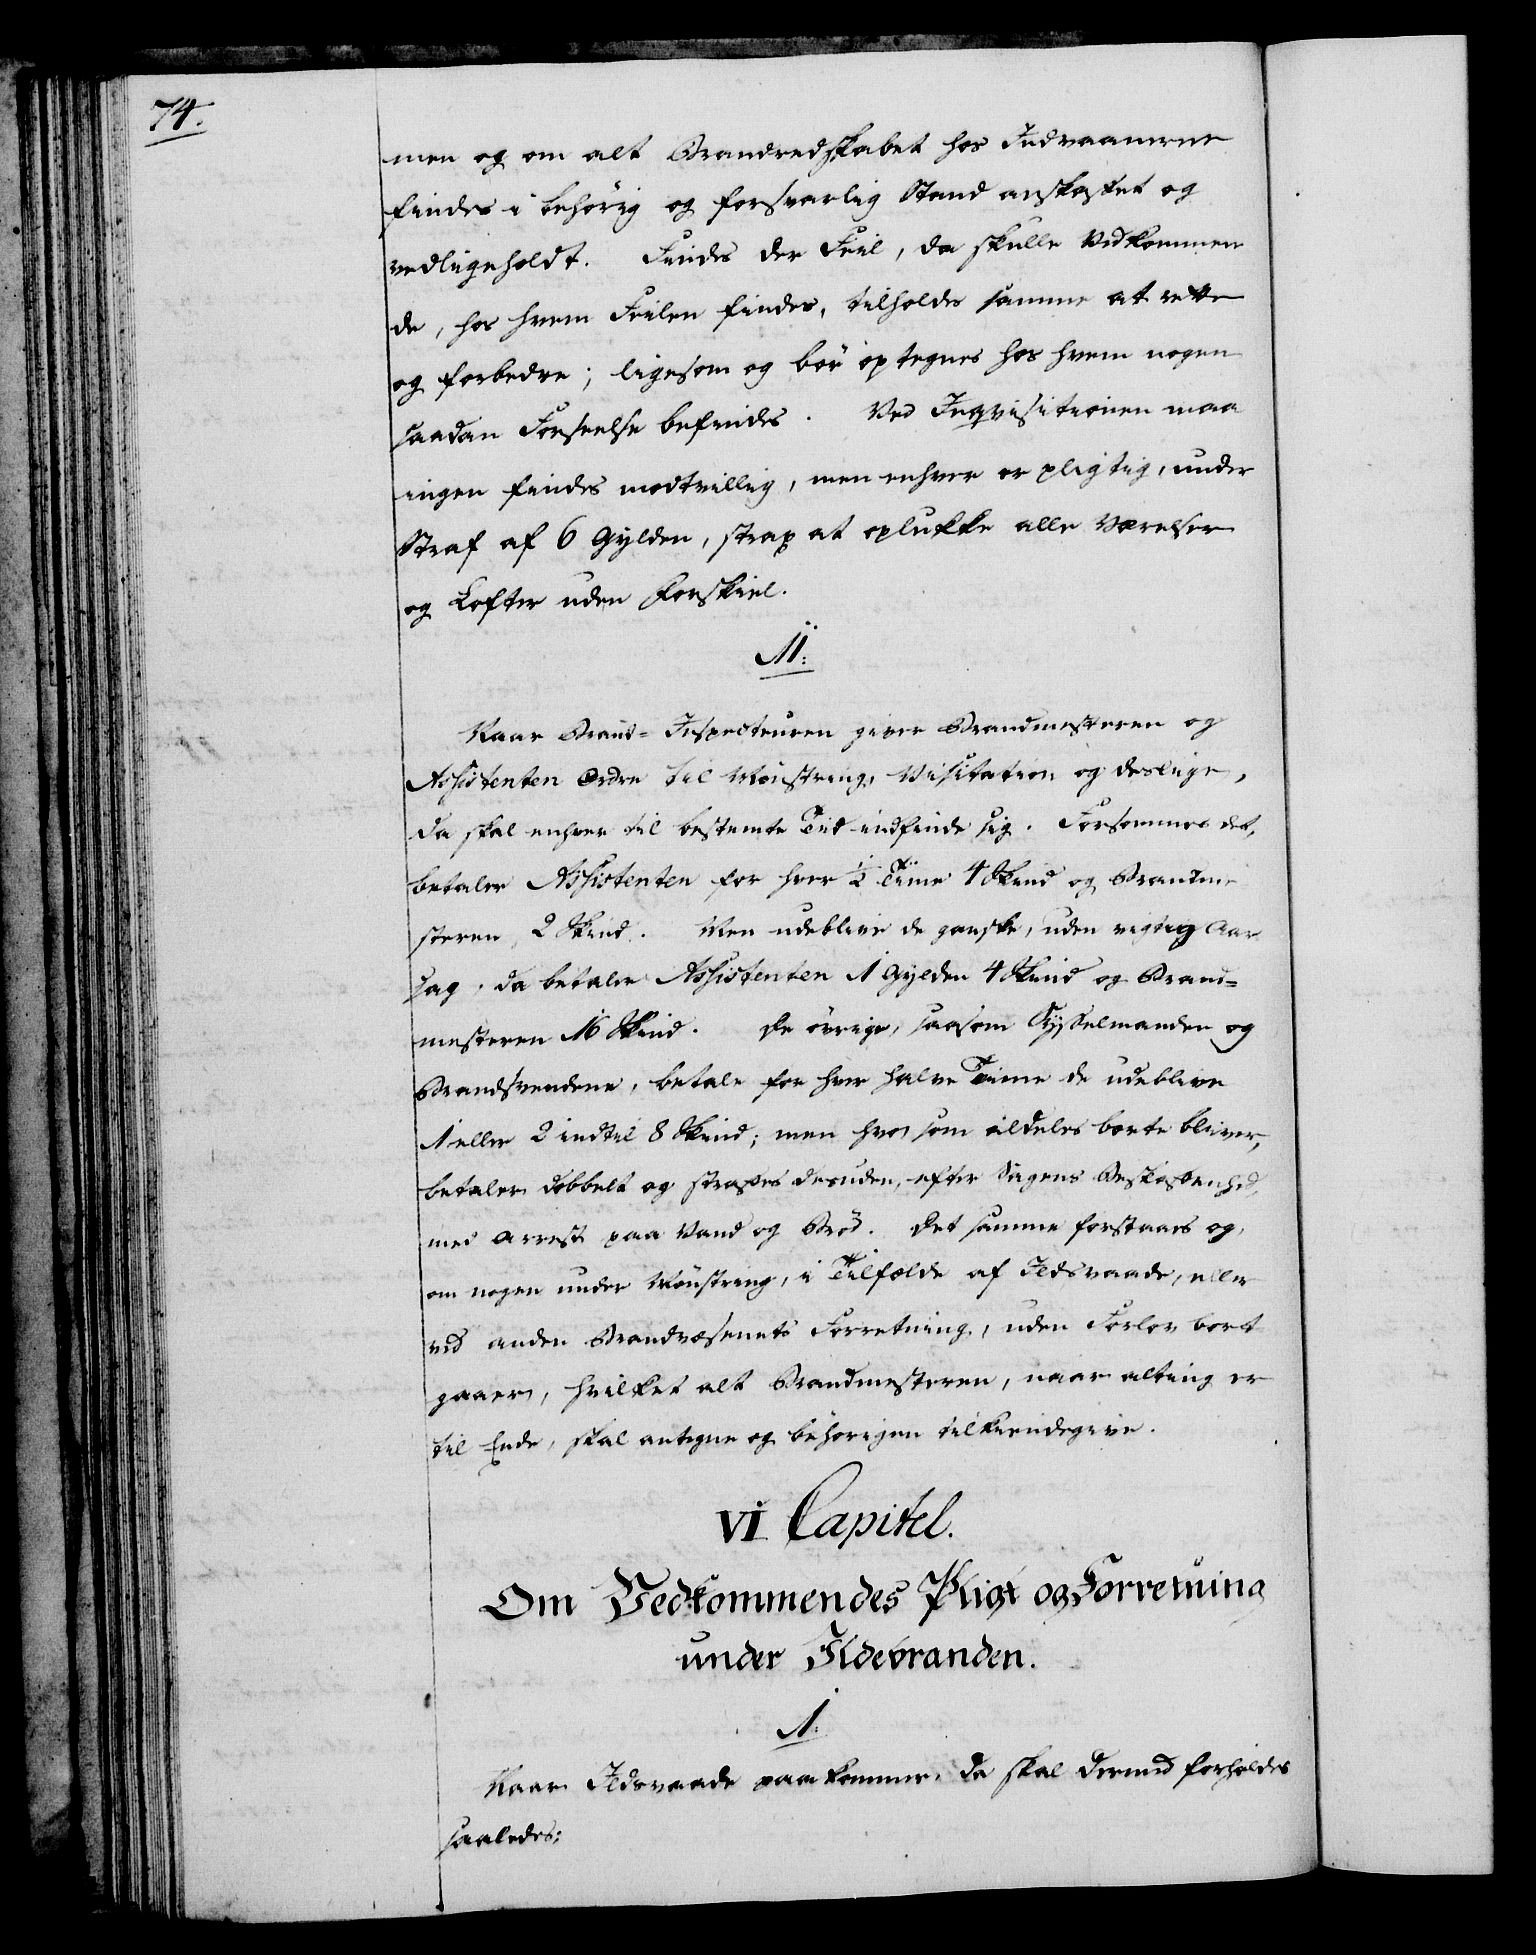 74.
men og om alt Brandredskabet hos Indvaanerne
findes i behørig og forsvarlig Stand anskaffet og
vedligeholdt. Findes der Feil, da skulle Vedkommen
de, hos hvem Feilen findes, tilholdes samme at rette
og forbedre; ligesom og bør optegnes hos hvem nogen
saadan Forseelse befindes. Ved Inqvisitionen maa
ingen findes modtvillig, men enhver er pligtig, under
Straf af 6 Gylden, strax at oplukke alle Værelser
og Lofter uden Forskiel.
11.
Naar Brand-Inspecteuren giver Brandmesteren og
Assistenten Ordre til Mønstring, Visitation og deslige,
da skal enhver til bestemte Tiid indfinde sig. Forsømmes det,
betaler Assistenten for hver ½ Time 4 Skind og Brandme
steren 2 Skind. Men udeblive de ganske, uden vigtig Aar
sag, da betaler Assistenten 1 Gylden 4 Skind og Brand-
mesteren 16 Skind. De øvrige, saasom Sysselmanden og
Brandsvendene, betale for hver halve Time de udeblive
1 eller 2 indtil 8 Skind; men hvo som aldeles borte bliver,
betaler dobbelt og straffes desuden, efter Sagens Beskaffenhed,
med Arrest paa Vand og Brød. Det samme forstaaes og,
om nogen under Mønstring, i Tilfælde af Ildsvaade, eller
ved anden Brandvæsenets Forretning, uden Forlov bort
gaaer, hvilket alt Brandmesteren, naar alting er
til Ende, skal antegne og behørigen tilkiendegive.
VI Capitel.
Om Vedkommendes Pligt og Forretning
under Ildebranden.
1.
Naar Ildsvaade paakommer, da skal dermed forholdes
saaledes: